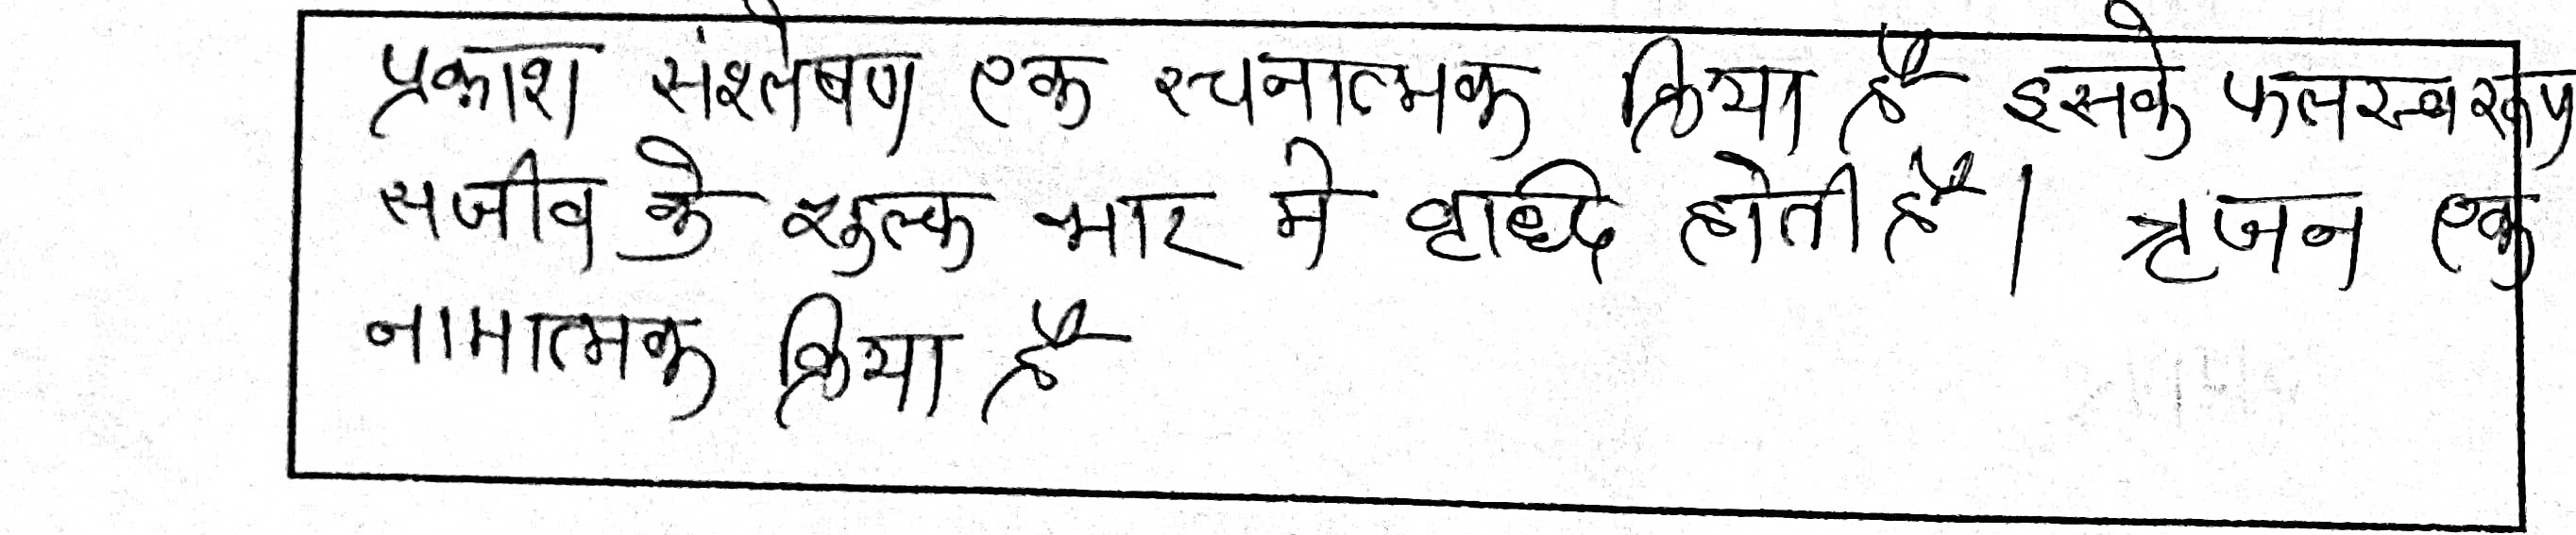 प्रकाश संश्लेषण एक रचनात्मक क्रिया है इसके फलस्वरूप
सजीव के शुल्क भार मे वृद्धि होती है। सृजन एक
नामात्मक क्रिया है